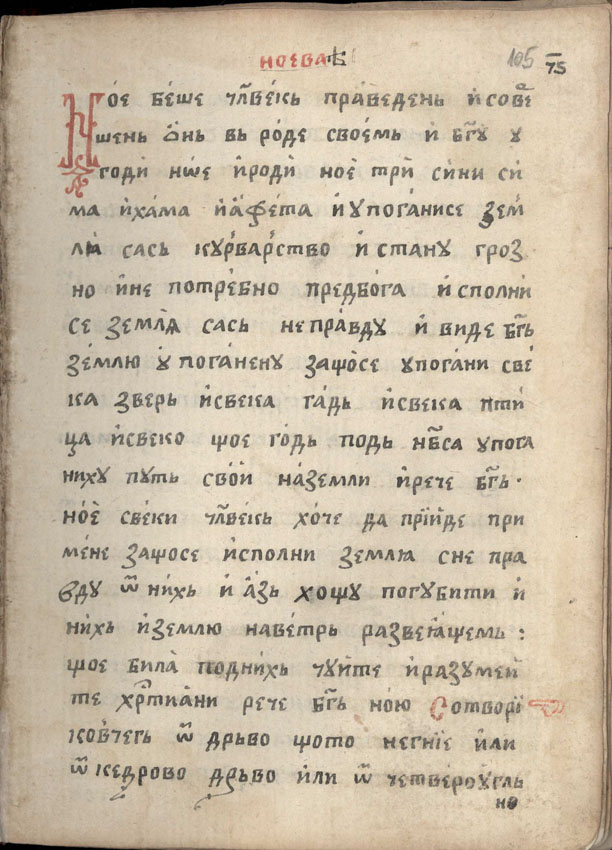 НОЕВА Ѣ 105 75
Ное беше чл҃векь праведень и сове
шень онь вь роде своемь и бг҃у у
годи нѡе и роди ное три сини си
ма и хама и иафета и упоганисе зем
лꙗ сась курварство и стану гроз
но и не потребно предбога и сполни
се землꙗ сась неправду и виде бг҃ь
землю упоганену защосе упогани све
ка зверь и свека гадь и свека пти
ца и свеко щое годь подь нб҃са упога
ниху путь свои наземли и рече бг҃ь ·
ное свеки чл҃векь хоче да прїиде при
мене защосе исполни землꙗ сне пра
вду ѿ нихь и азь хощу погубити и
нихь и землю наветрь развеꙗщемь :
щое била поднихь чуйте и разумей
те хрт҃иꙗни рече бг҃ь ною Сотвори
ковчегь ѿ дрьво щото негниѥ или
ѿ кедрово дрьво или ѿ четвероугль
но